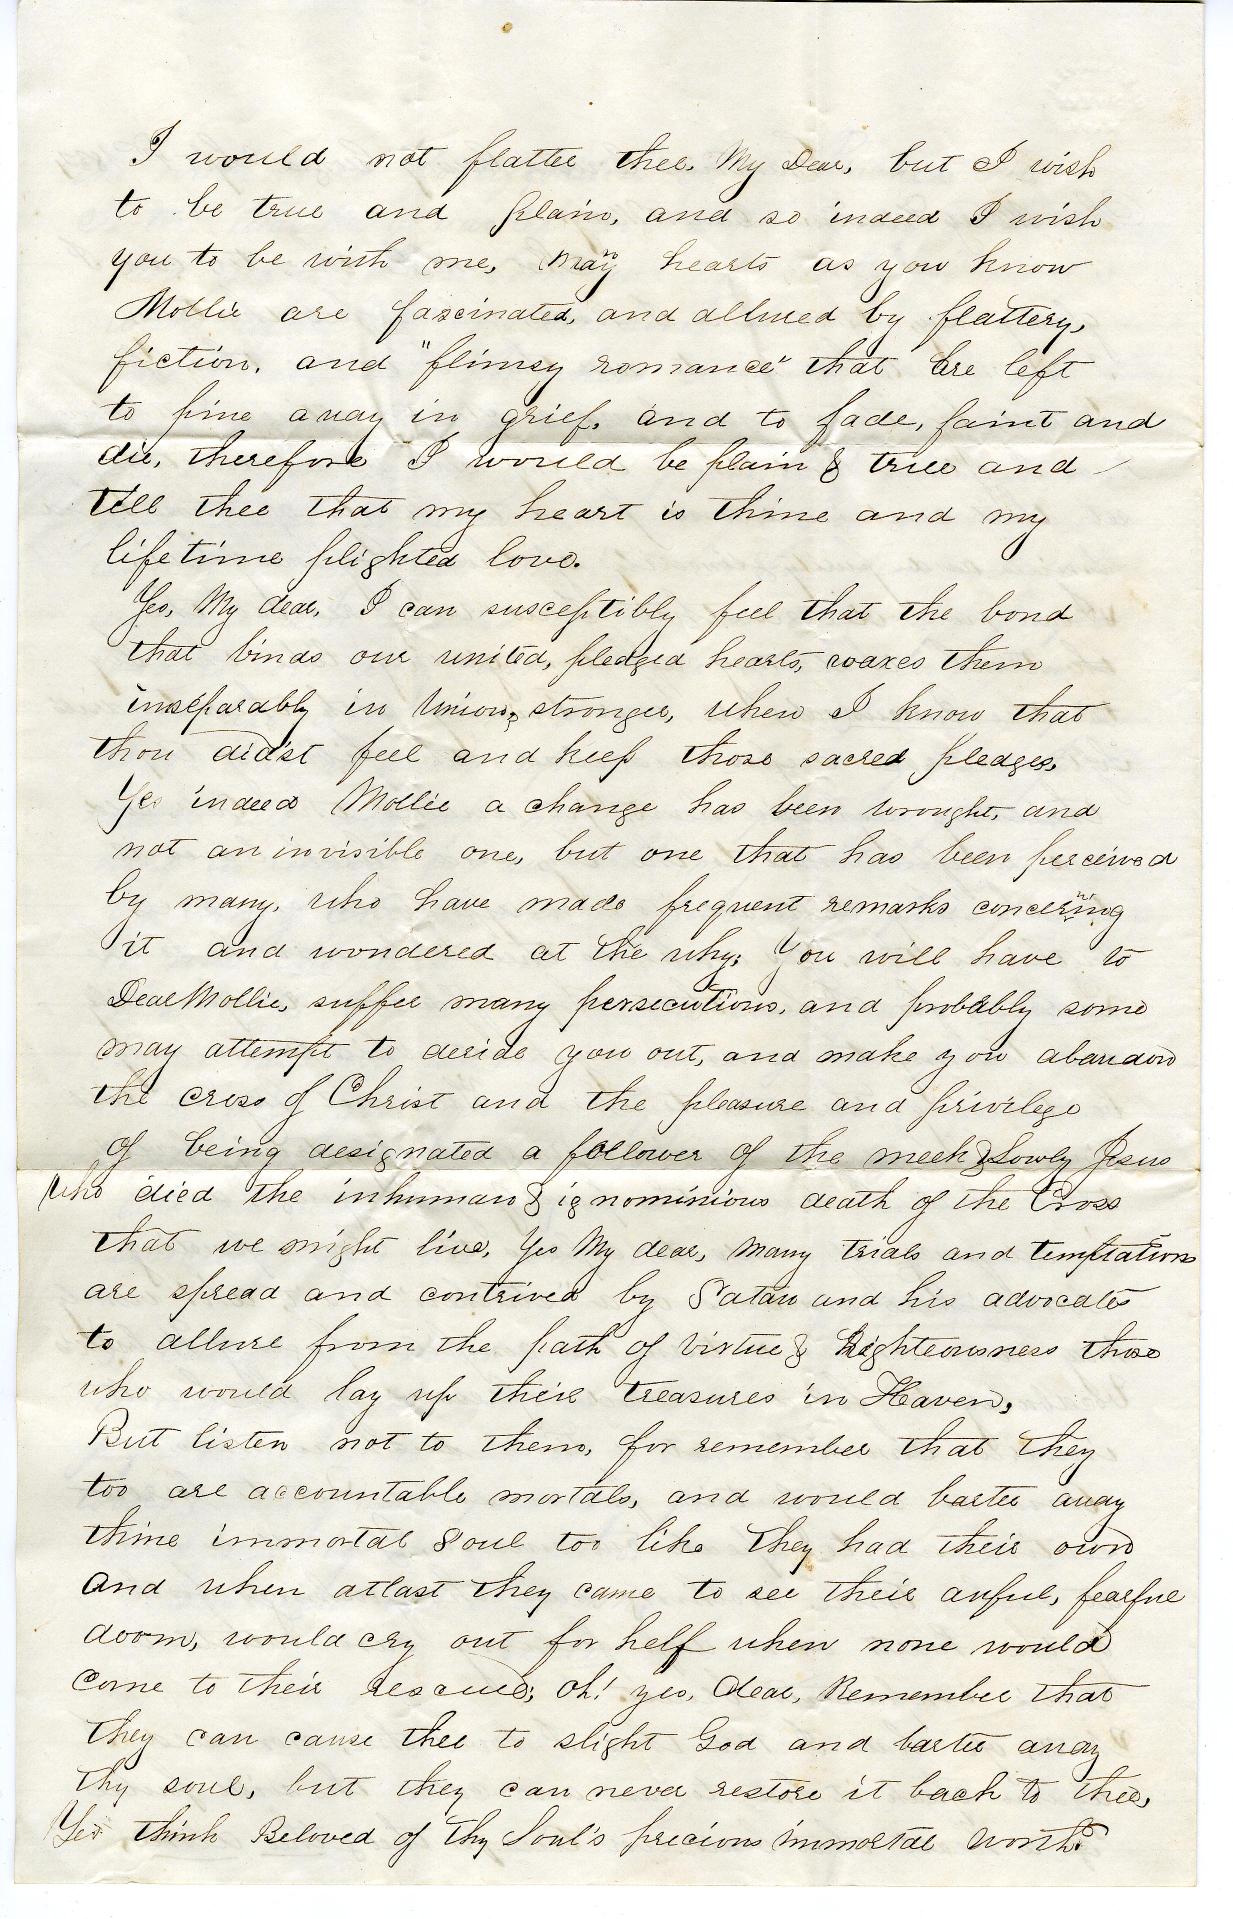 I would not flatter thee, My Dear, but I wish
to be true and plain, and so indeed I wish
you to be with me, Many hearts as you know
Mollie are fascinated, and allured by flattery,
fiction, and "flimsy romance" that are left
to pine away in grief, and to fade, faint and
die, therefore I would be plain & true and
tell thee that my heart is thine and my
lifetime plighted love.
Yes, My dear, I can susceptibly feel that the bond
that binds our united, pledged hearts, waxes them
inseparably in Union, stronger, when I know that
thou did'st feel and keep those sacred pledges,
Yes indeed Mollie a change has been wrought, and
not an invisible one, but one that has been perceived
by many, who have made frequent remarks concerning
it and wondered at the why; You will have to
Dear Mollie, suffer many persecutions, and probably some
may attempt to deride you out, and make you abandon
the cross of Christ and the pleasure and privilege
of being designated a follower of the meek & Lowly Jesus
who died the inhuman & ignominious death of the Cross
that we might live, Yes My dear, Many trials and temptations
are spread and contrived by Satan and his advocates
to allure from the path of virtue & Righteousness those
who would lay up their treasures in Heaven,
But listen not to them, for remember that they
too are accountable mortals, and would barter away
thine immortal Soul too like they had their own
And when atlast they came to see their awful, fearful
doom, would cry out for help when none would
come to their rescue; Oh! yes, Dear, Remember that
they can cause thee to slight God and barter away
thy soul, but they can never restore it back to thee,
Yes think Beloved of thy Soul's precious immortal worth.